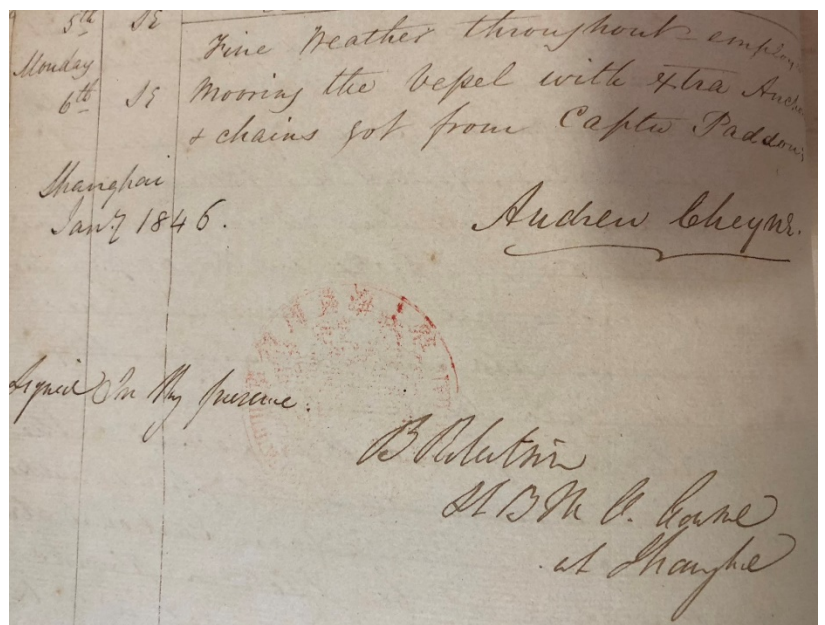 5th SE
Fine Weather throughout - employ
Monday
6th SE Mooring the Vessel with extra Ancho
& chains got from Captn Paddon
Shanghai
Jany 1846.
Andrew Cheyne.
Signed In My presence.
B Robertson
H B M V. Consul
at Shanghae